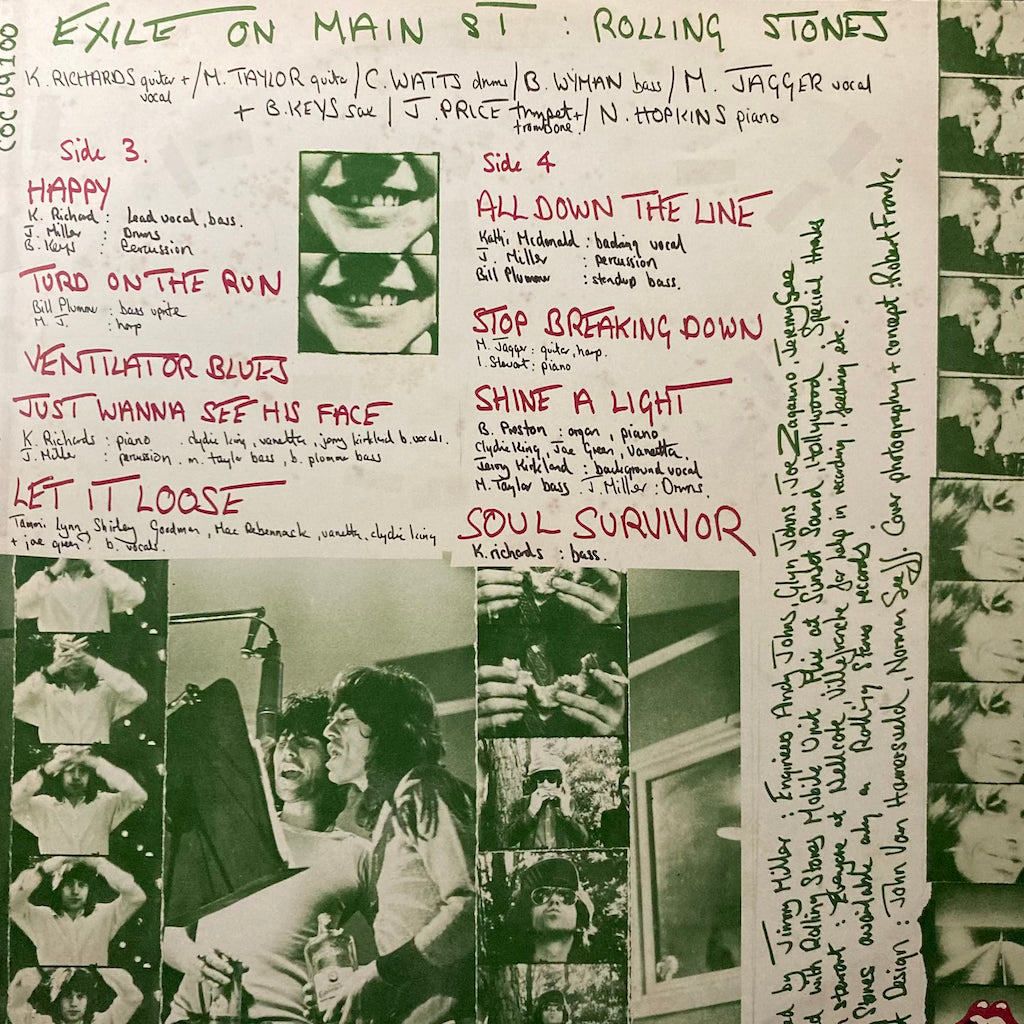 COC 69100
EXILE ON MAIN ST : ROLLING STONES
K. RICHARDS guitar + vocal / M. TAYLOR guitar / C. WATTS drums / B. WYMAN bass / M. JAGGER vocal
+ B. KEYS sax / J. PRICE trumpet + trombone / N. HOPKINS piano
Side 3.
HAPPY
K. Richard : Lead vocal, bass.
J. Miller : Drums
B. Keys : Percussion
TURD ON THE RUN
Bill Plummer : bass uprite
M. J. : harp
VENTILATOR BLUES
JUST WANNA SEE HIS FACE
K. Richards : piano . clydie king, vanetta, jerry kirkland b. vocals.
J. Miller : percussion. m. taylor bass, b. plummer bass
LET IT LOOSE
Tammi Lynn, Shirley Goodman, Mac Rebennack, vanetta, clydie king
+ joe green : b. vocals.
Side 4
ALL DOWN THE LINE
Kathi Mcdonald : backing vocal
J. Miller : percussion
Bill Plummer : standup bass.
STOP BREAKING DOWN
M. Jagger : guitar, harp.
I. Stewart : piano
SHINE A LIGHT
B. Preston : organ, piano
Clydie King, Joe Green, Vanetta,
Jerry Kirkland : background vocal
M. Taylor bass . J. Miller : Drums.
SOUL SURVIVOR
K. richards : bass.
by Jimmy Miller : Engineers Andy Johns, Glyn Johns, Joe Zaganno, Jeremy Gee
with Rolling Stones Mobile Unit Plus at Sunset Sound, Hollywood . Special thanks
stewart : Everyone at Nellcote, Villefranche for help in recording, feeding etc.
Stones available only on Rolling Stones records
Design : John Van Hamersveld, Norman Seeff. Cover photography + concept : Robert Frank.